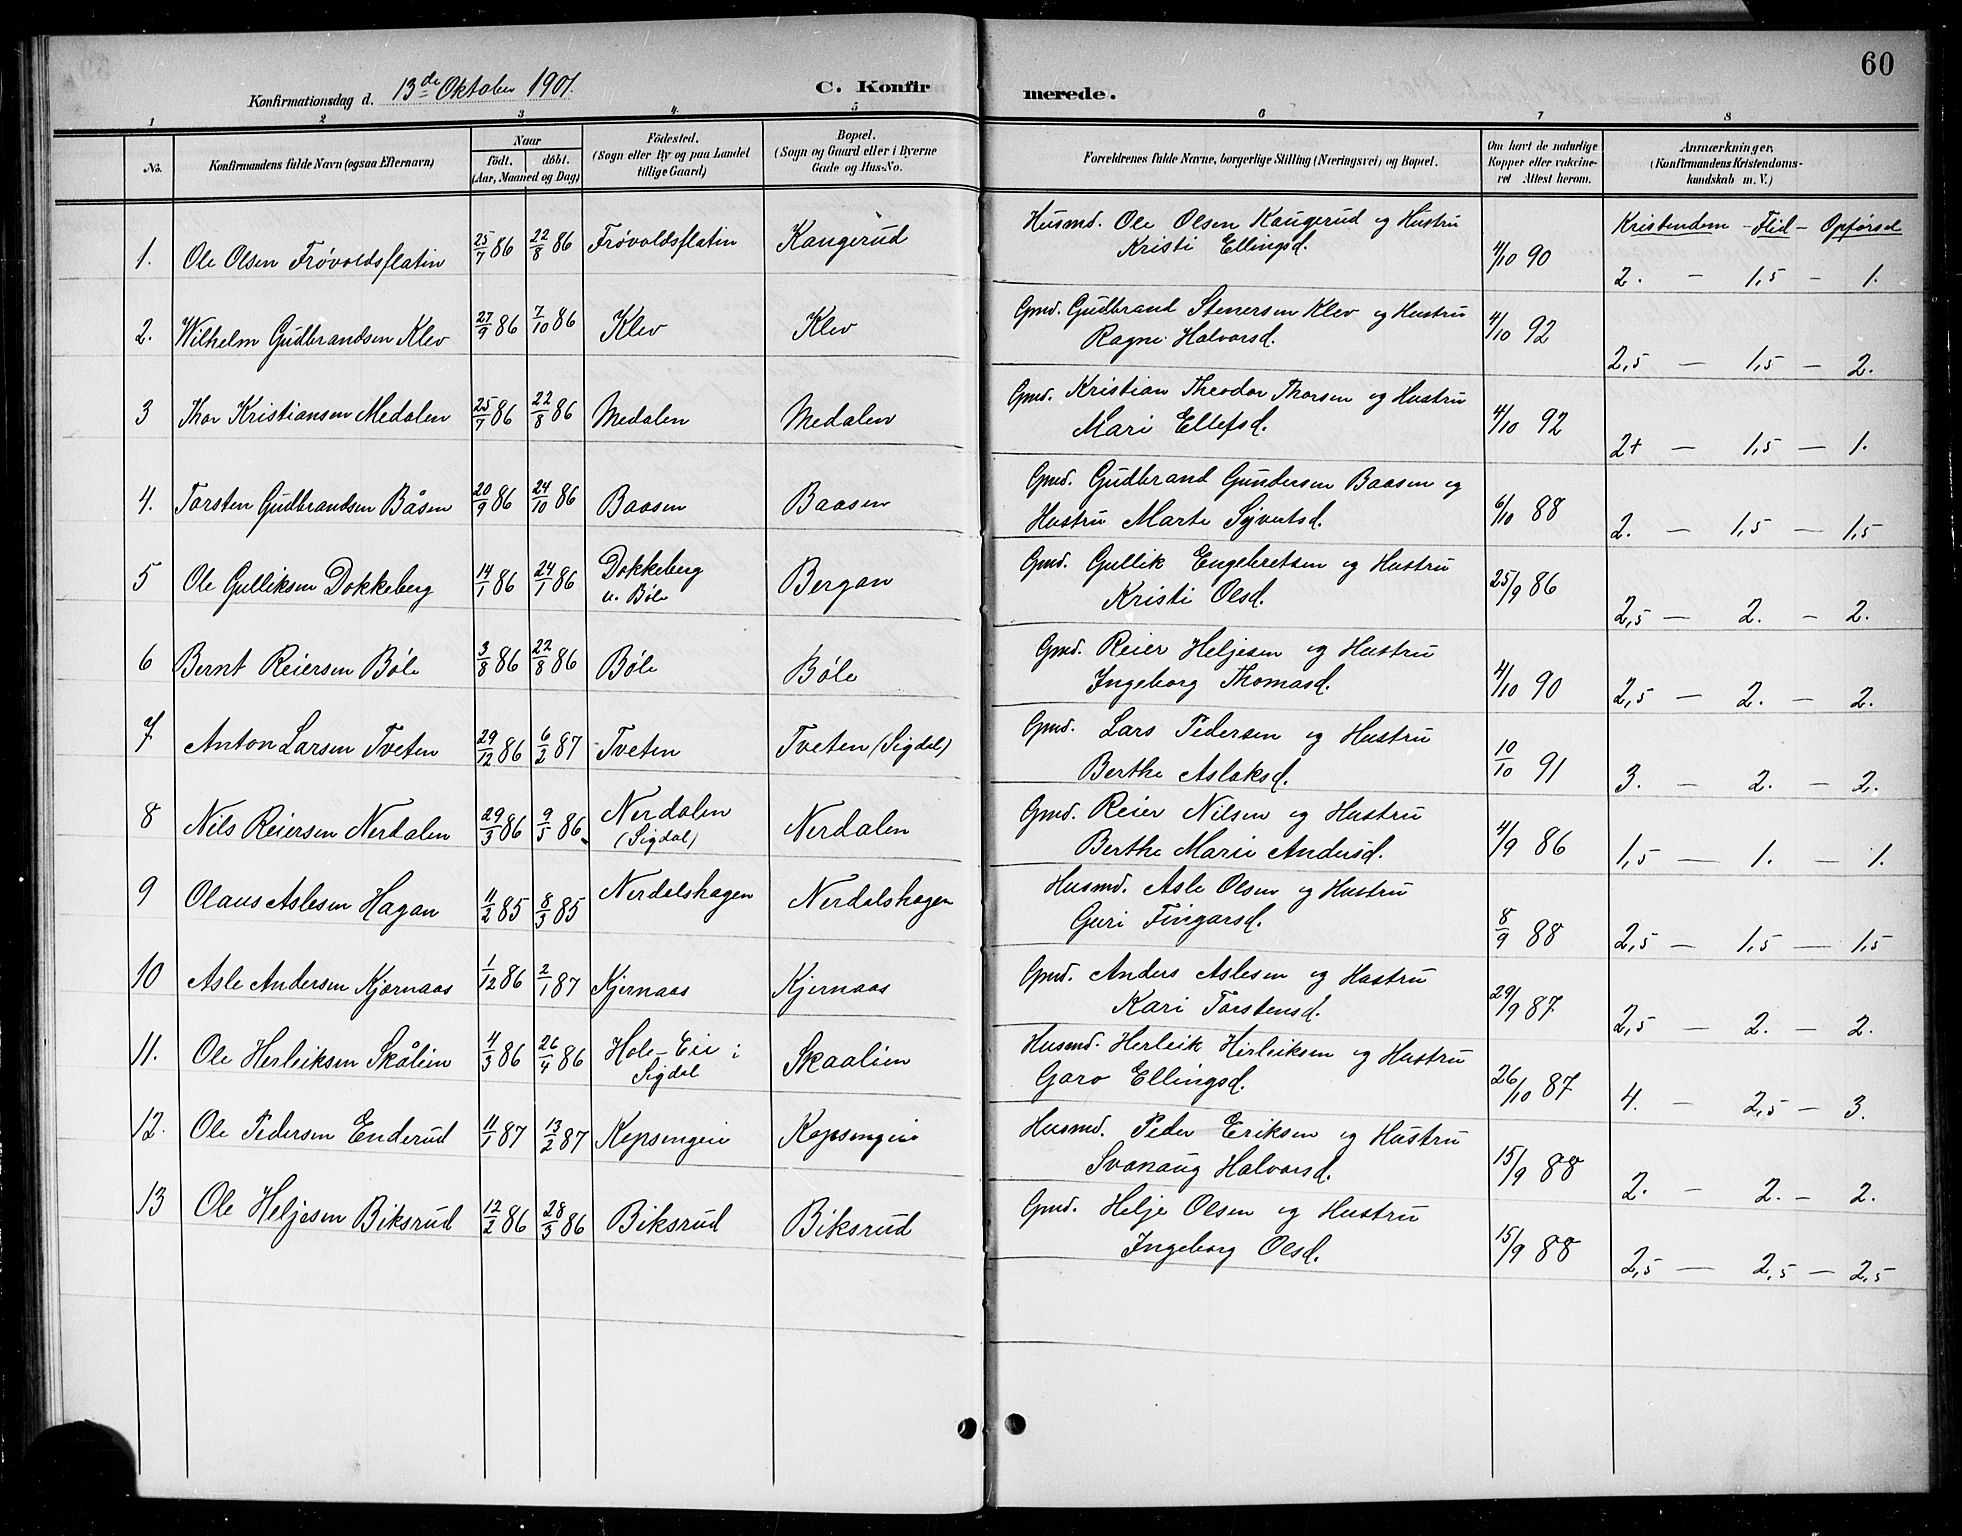 60
Konfirmationsdag d. 13de Oktober 1901.
C. Konfirmerede.
1 2 3 4 5 6 7 8
No.
Konfirmandens fulde Navn (ogsaa Efternavn)
Naar
födt. döbt.
(Aar, Maaned og Dag)
Födested.
(Sogn eller By og paa Landet
tillige Gaard)
Bopæl.
(Sogn og Gaard eller i Byerne
Gade og Hus-No.
Forældrenes fulde Navne, borgerlige Stilling (Næringsvei) og Bopæl.
Om havt de naturlige
Kopper eller vakcine-
ret Attest herom.
Anmærkninger,
(Konfirmandens Kristendoms-
kundskab m. V.)
Kristendom - Flid - Opførsel
1. Ole Olsen Frøvoldsflatin 25/7 86 22/8 86 Frøvoldsflatin Kaugerud Husmd. Ole Olsen Kaugerud og Hustru
Kristi Ellingsd. 4/10 90 2. - 1,5 - 1.
2. Wilhelm Gudbrandsen Klev 27/9 86 7/10 86 Klev Klev Gmd. Gudbrand Stenersen Klev og Hustru
Ragne Halvorsd. 4/10 92 2,5 - 1,5 - 2.
3 Thor Kristiansen Medalen 25/7 86 22/8 86 Medalen Medalen Gmd. Kristian Theodor Thorsen og Hustru
Mari Ellefsd. 4/10 92 2+ - 1,5 - 1.
4. Torsten Gudbrandsen Båsen 20/9 86 24/10 86 Baasen Baasen Gmd. Gudbrand Gundersen Baasen og
Hustru Marte Syvertsd. 6/10 88 2. - 1,5 - 1,5
5 Ole Gulliksen Dokkeberg 14/1 86 24/1 86 Dokkeberg
u. Böle Bergan Gmd. Gullik Engebretsen og Hustru
Kristi Olsd. 25/9 86 2,5 - 2. - 2.
6 Bernt Reiersen Böle 3/8 86 22/8 86 Böle Böle Gmd. Reier Heljesen og Hustru
Ingeborg Thomasd. 4/10 90 2,5 - 2. - 2.
7 Anton Larsen Tveten 29/12 86 6/2 87 Tveten Tveten (Sigdal) Gmd. Lars Pedersen og Hustru
Berthe Aslaksd. 10/10 91 3. - 2. - 2.
8 Nils Reiersen Nerdalen 29/3 86 9/5 86 Nerdalen
(Sigdal) Nerdalen Gmd. Reier Nilsen og Hustru
Berthe Marie Andersd. 4/9 86 1,5 - 1. - 1.
9 Olaus Aslesen Hagan 11/2 85 8/3 85 Nerdalshagen Nerdalshagen Husmd. Asle Olsen og Hustru
Guri Fingarsd. 8/9 88 2,5 - 1,5 - 1,5
10 Asle Andersen Kjørnaas 1/12 86 2/1 87 Kjernaas Kjernaas Gmd. Anders Aslesen og Hustru
Kari Torstensd. 29/9 87 2,5 - 2. - 2.
11. Ole Herleiksen Skålien 4/3 86 26/4 86 Hole-Eie i
Sigdal Skaalien Husmd. Herleik Herleiksen og Hustru
Garo Ellingsd. 26/10 87 4. - 2,5 - 3.
12. Ole Pedersen Enderud 11/1 87 13/2 87 Kopsengeie Kopsengeie Husmd. Peder Eriksen og Hustru
Svanaug Halvorsd. 15/9 88 2. - 2. - 2.
13 Ole Heljesen Biksrud 12/2 86 28/3 86 Biksrud Biksrud Gmd. Helje Olsen og Hustru
Ingeborg Olsd. 15/9 88 2,5 - 2,5 - 2,5